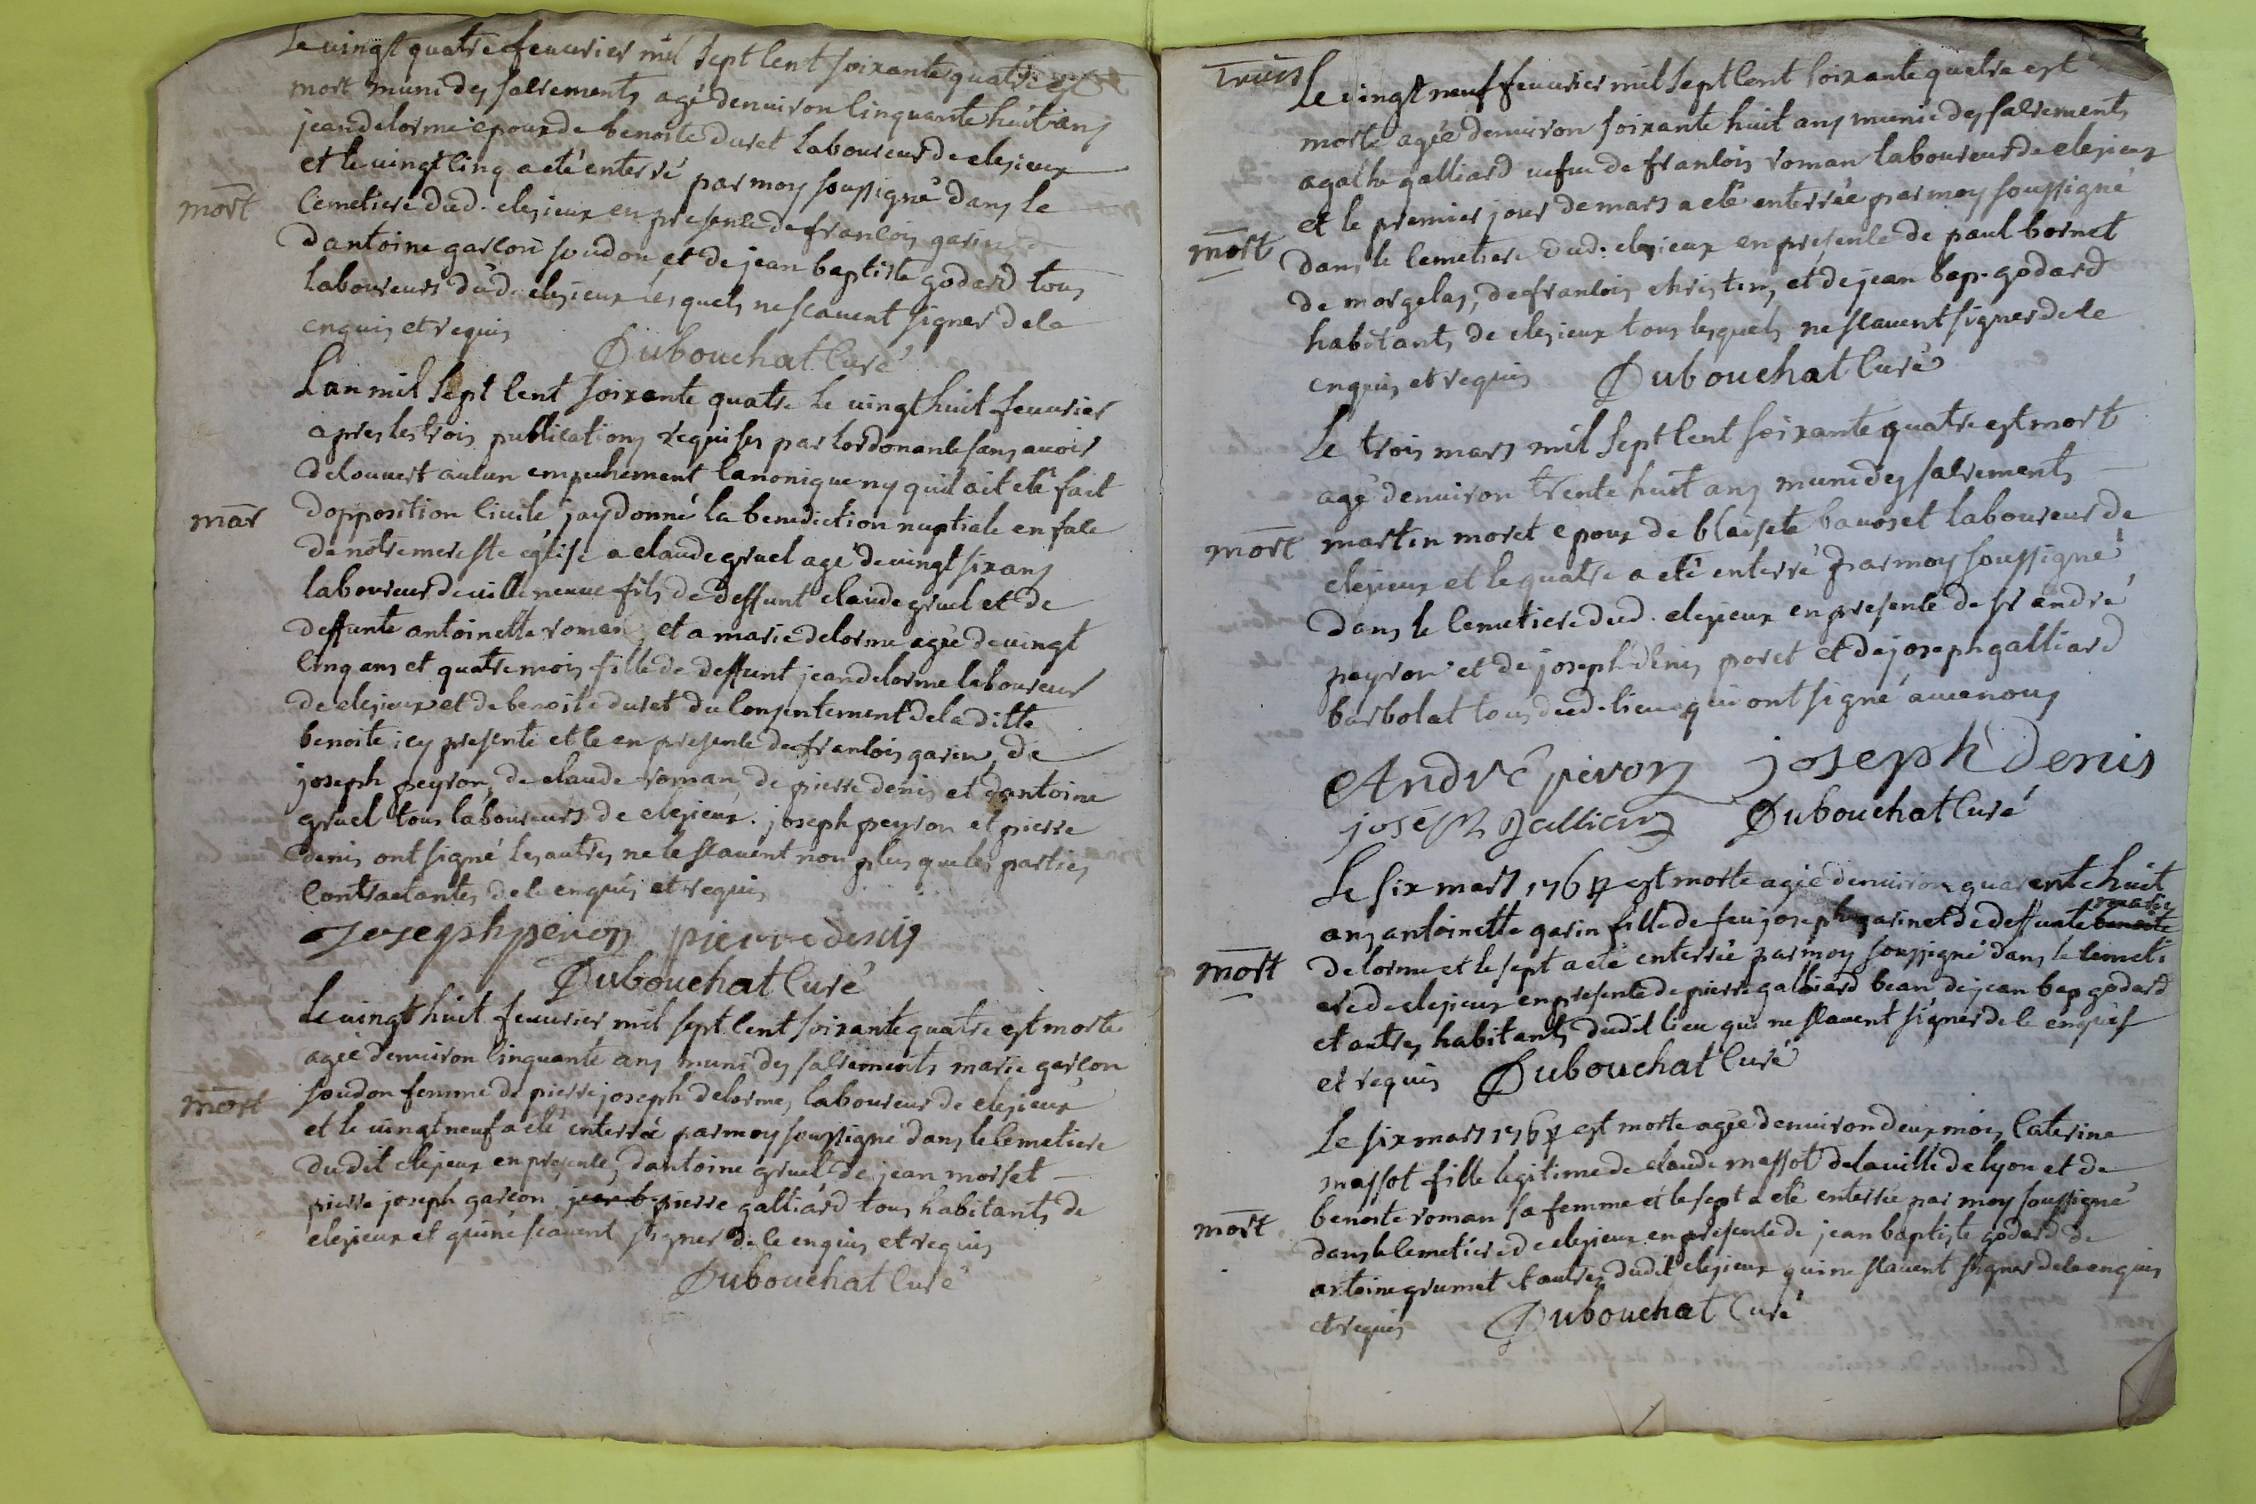 Le vingt quatre feuurier mil sept cent soixante quatre est
mort muni des sacrements agé denuiron cinquante huit ans
jean delorme epoux de benoite duret laboureur de clezieux
et le vingt cinq a eté enterré par moy soussigné dans le
mort
cemetiere dud. clezieux en presence de francois garin
dantoine garcon soudon et de jean baptiste godard tous
laboureurs dud. clezieux les quels ne scauent signer de ce
enquis et requis
Dubouchat Curé
Lan mil sept cent soixante quatre le vingt huit feuurier
apres les trois publications requises par lordonance sans auoir
decouuert aucun empechement canonique ny quil ait eté fait
mar
dopposition ciuile jay donné la benediction nuptiale en face
de nôtre mere ste église a claude gruel agé de vingt six ans
laboureur de ville neuue fils de deffunt claude gruel et de
deffunte antoinette roman, et a marie delorme agée de vingt
cinq ans et quatre mois fille de deffunt jean delorme laboureur
de clezieux et de benoite duret du consentement de la ditte
benoite icy presente et ce en presence de francois garin, de
joseph peyron, de claude roman, de pierre denis et dantoine
gruel tous laboureurs de clezieux. joseph peyron et pierre
denis ont signé les autres ne le scauent non plus que les parties
contractantes de ce enquis et requis
Joseph peron pierre denis
Dubouchat Curé
Le vingt huit feuurier mil sept cent soixante quatre est morte
agée denuiron cinquante ans muni des sacrements marie garcon
mort
soudon femme de pierre joseph delorme, laboureur de clezieux
et le vingt neuf a eté enterrée par moy soussigné dans le cemetiere
dudit clezieux en presence, dantoine gruel de jean morset
pierre joseph garcon jean b pierre galliard tous habitants de
clezieux et qui ne scauent signer de ce enquis et requis
Dubouchat Curé
Le vingt neuf feuurier mil sept cent soixante quatre est
morte agée denuiron soixante huit ans munie des sacrements
agathe galliard vefue de francois roman laboureur de clezieux
et le premier jour de mars a eté enterrée par moy soussigné
mort
dans le cemetiere dud. clezieux en presence de paul bornet
de morgelas, de francois christin, et de jean bap. godard
habitants de clezieux tous lesquels ne scauent signer de ce
enquis et requis Dubouchat Curé
Le trois mars mil sept cent soixante quatre est mort
agé denuiron trente huit ans muni des sacrements
mort
martin moret epoux de blaisete bauoset laboureur de
clezieux et le quatre a eté enterré par moy soussigné
dans le cemetiere dud. clezieux en presence de sr andré
peyron et de joseph denis poret et de joseph galliard
barbolat tous dud. lieu qui ont signé auec nous
André peron joseph denis
joseph Galliard Dubouchat Curé
Le six mars 1764 est morte agée denuiron quarente huit
marie
ans antoinette garin fille de feu joseph garin et de deffunte benoite
mort
delorme et le sept a eté enterrée par moy soussigné dans le cemeti
ere de clezieux en presence de pierre galliard bean de jean bap godard
et autres habitants dudit lieu qui ne scauent signer de ce enquis
et requis Dubouchat Curé
Le six mars 1764 est morte agée denuiron deux mois Caterine
massot fille legitime de claude massot de la ville de lyon et de
benoite roman sa femme et le sept a eté enterrée par moy soussigné
mort
dans le cemetiere de clezieux en presence de jean baptiste godard de
antoine grumet et autres dudit clezieux qui ne scauent signer de ce enquis
et requis Dubouchat Curé